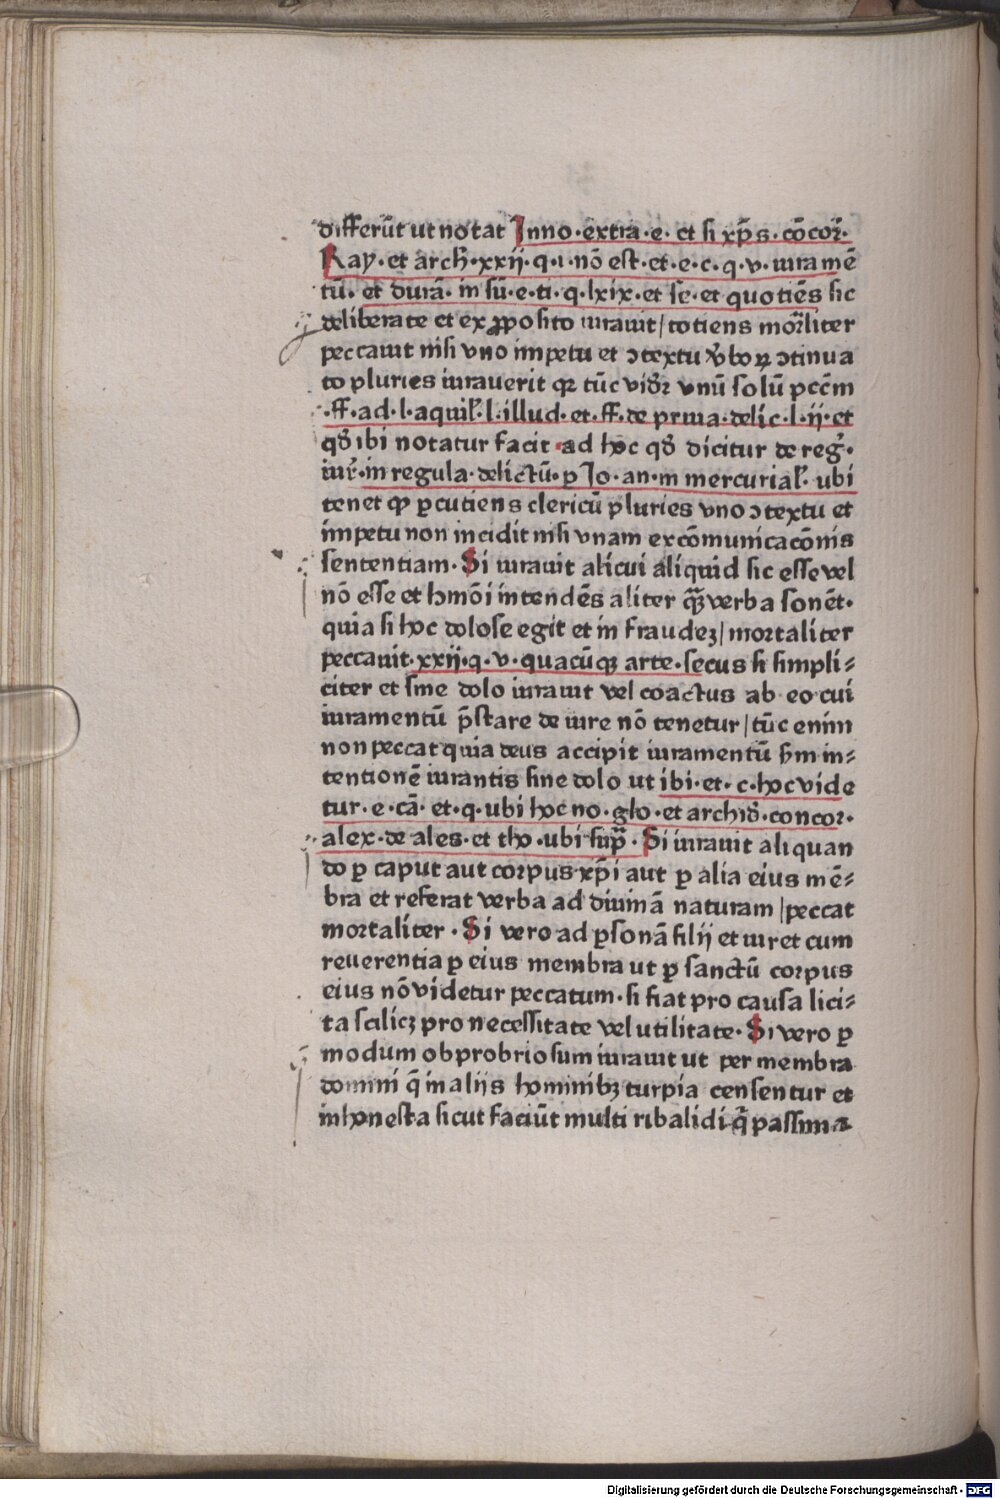 differūt ut notat Inno·extra·e· et si xp̄s·cōcor᷑·
Ray·et arch̄·xxij·q·i·nō est·et·e·c·q·v·iuramē
tū·et durā·in sū·e·ti·q·lxix·et se·et quotiēs sic
deliberate et ex ꝓposito iurauit/totiens mor᷑liter
peccauit nisi vno impetu et ɔtextu v̄boꝝ ɔtinua
to pluries iurauerit qꝛ tūc vidr᷑ vnū solū pccm̄
·ff·ad·l·aquil᷑·l·illud·et·ff·de priua·delic·l·ij·et
qd̄ ibi notatur facit ad hoc qd̄ dicitur de reg᷑·
iur᷑·in regula·delictū·ꝑ Io·an·in mercurial᷑·ubi
tenet qp ꝑcutiens clericū pluries vno ɔtextu et
impetu non incidit nisi vnam excōmunicacōnis
sententiam·Si iurauit alicui aliquid sic esse vel
nō esse et hmōi intendēs aliter qͣꝫ verba sonēt·
quia si hoc dolose egit et in fraudeꝫ/mortaliter
peccauit·xxij·q·v·quacūqꝫ arte·secus si simpli⸗
citer et sine dolo iurauit vel coactus ab eo cui
iuramentū p̄stare de iure nō tenetur/tūc enim
non peccat quia deus accipit iuramentū s̄m in⸗
tentionē iurantis sine dolo ut ibi·et·c·hoc vide
tur·e·cā·et·q·ubi hoc no·glo·et archid̄·concor·
alex·de ales·et tho·ubi supͣ·Si iurauit aliquan
do ꝑ caput aut corpus xp̄i aut ꝑ alia eius mē⸗
bra et referat verba ad diuinā naturam/peccat
mortaliter·Si vero ad ꝑsonā filij et iuret cum
reuerentia ꝑ eius membra ut ꝑ sanctū corpus
eius nō videtur peccatum·si fiat pro causa lici⸗
ta scilicꝫ pro necessitate vel utilitate·Si vero ꝑ
modum obprobriosum iurauit ut per membra
domini q̄ in alijs hominibꝫ turpia censentur et
inhonesta sicut faciūt multi ribalidi q̄ passim a
Digitalisierung gefördert durch die Deutsche Forschungsgemeinschaft - DFG